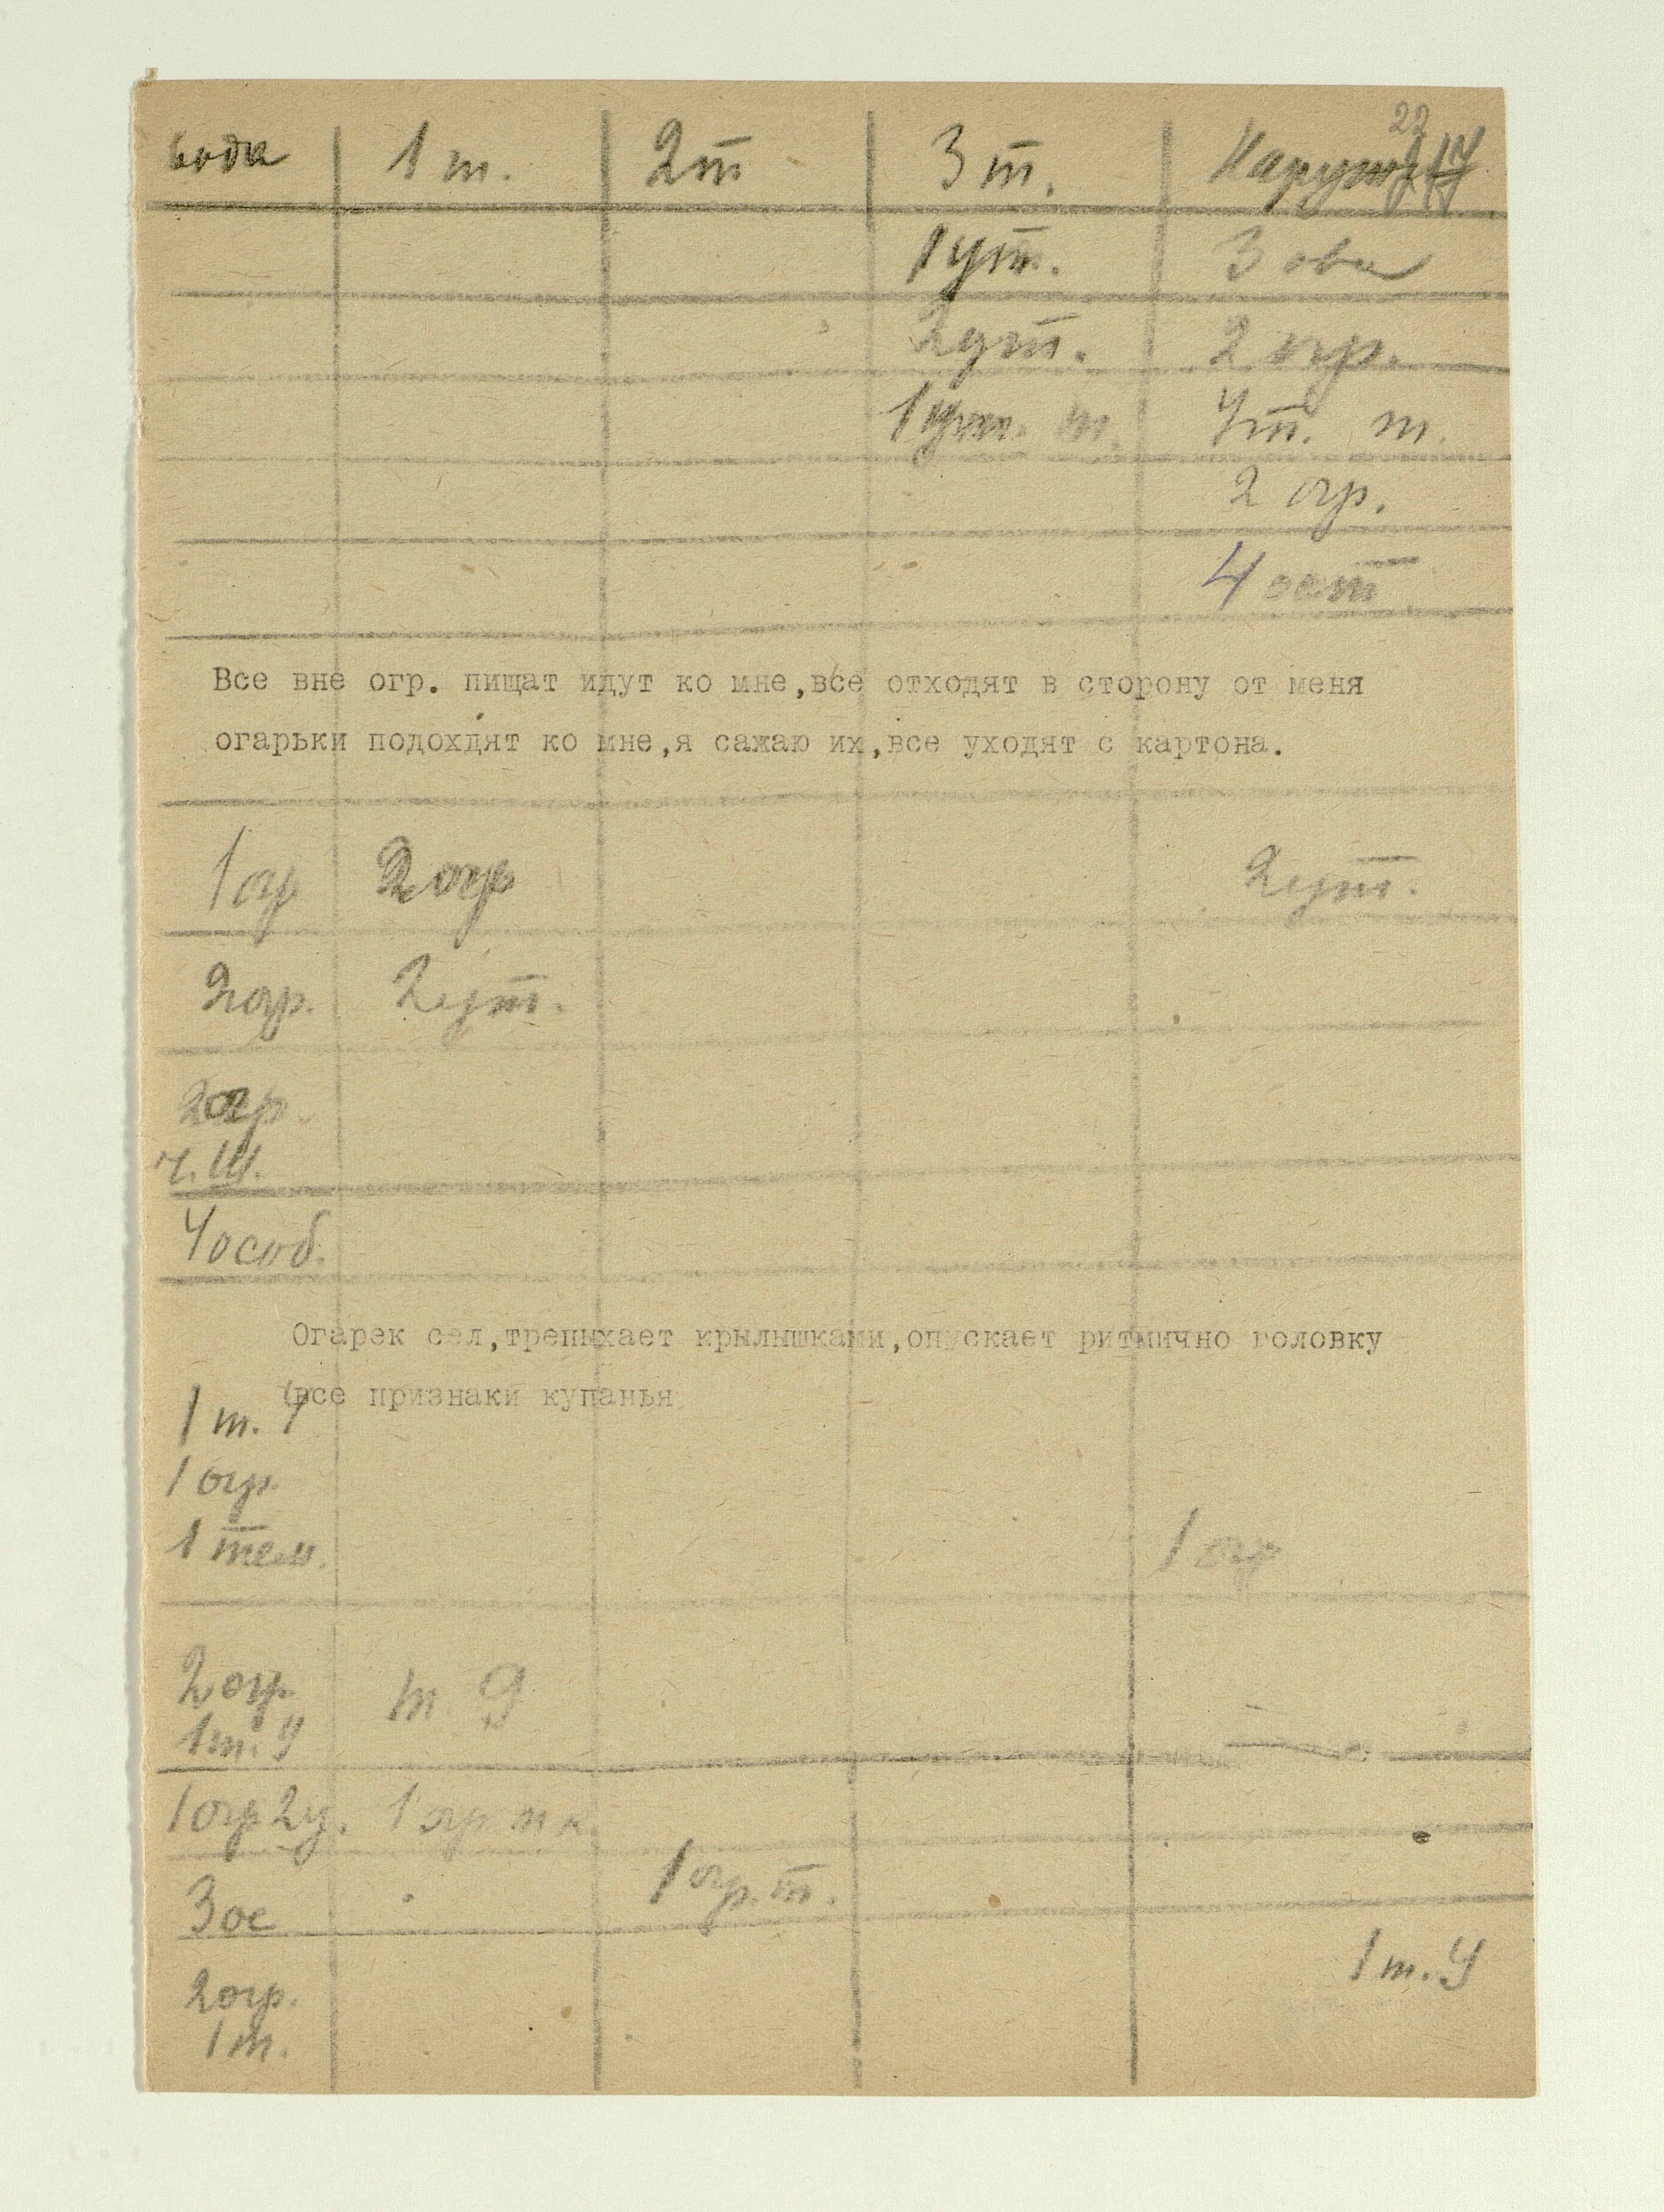 22
вода 1 т. 2т 3 т.
1ут. 3
2ут. 2 огр.
1ут. т. т.
2 огр.
4
Все вне огр. пищат идут ко мне,все отходят в сторону от меня
огарьки подохдят ко мне,я сажаю их,все уходят с картона.
1ог 2огр 2ут.
2огр. 2ут.
2огр.
ч.Ш.
4особ.
Огарек сел,трепыхает крылышками,опускает ритмично головку
(все признаки купанья
1 т. У
1 огр.
1 тем. 1 ог
2 огр. т. 9
1т. У
1огр 2у. 1 огр т к.
3 ос 1 огр. т.
1 т. У
2огр.
1 т.